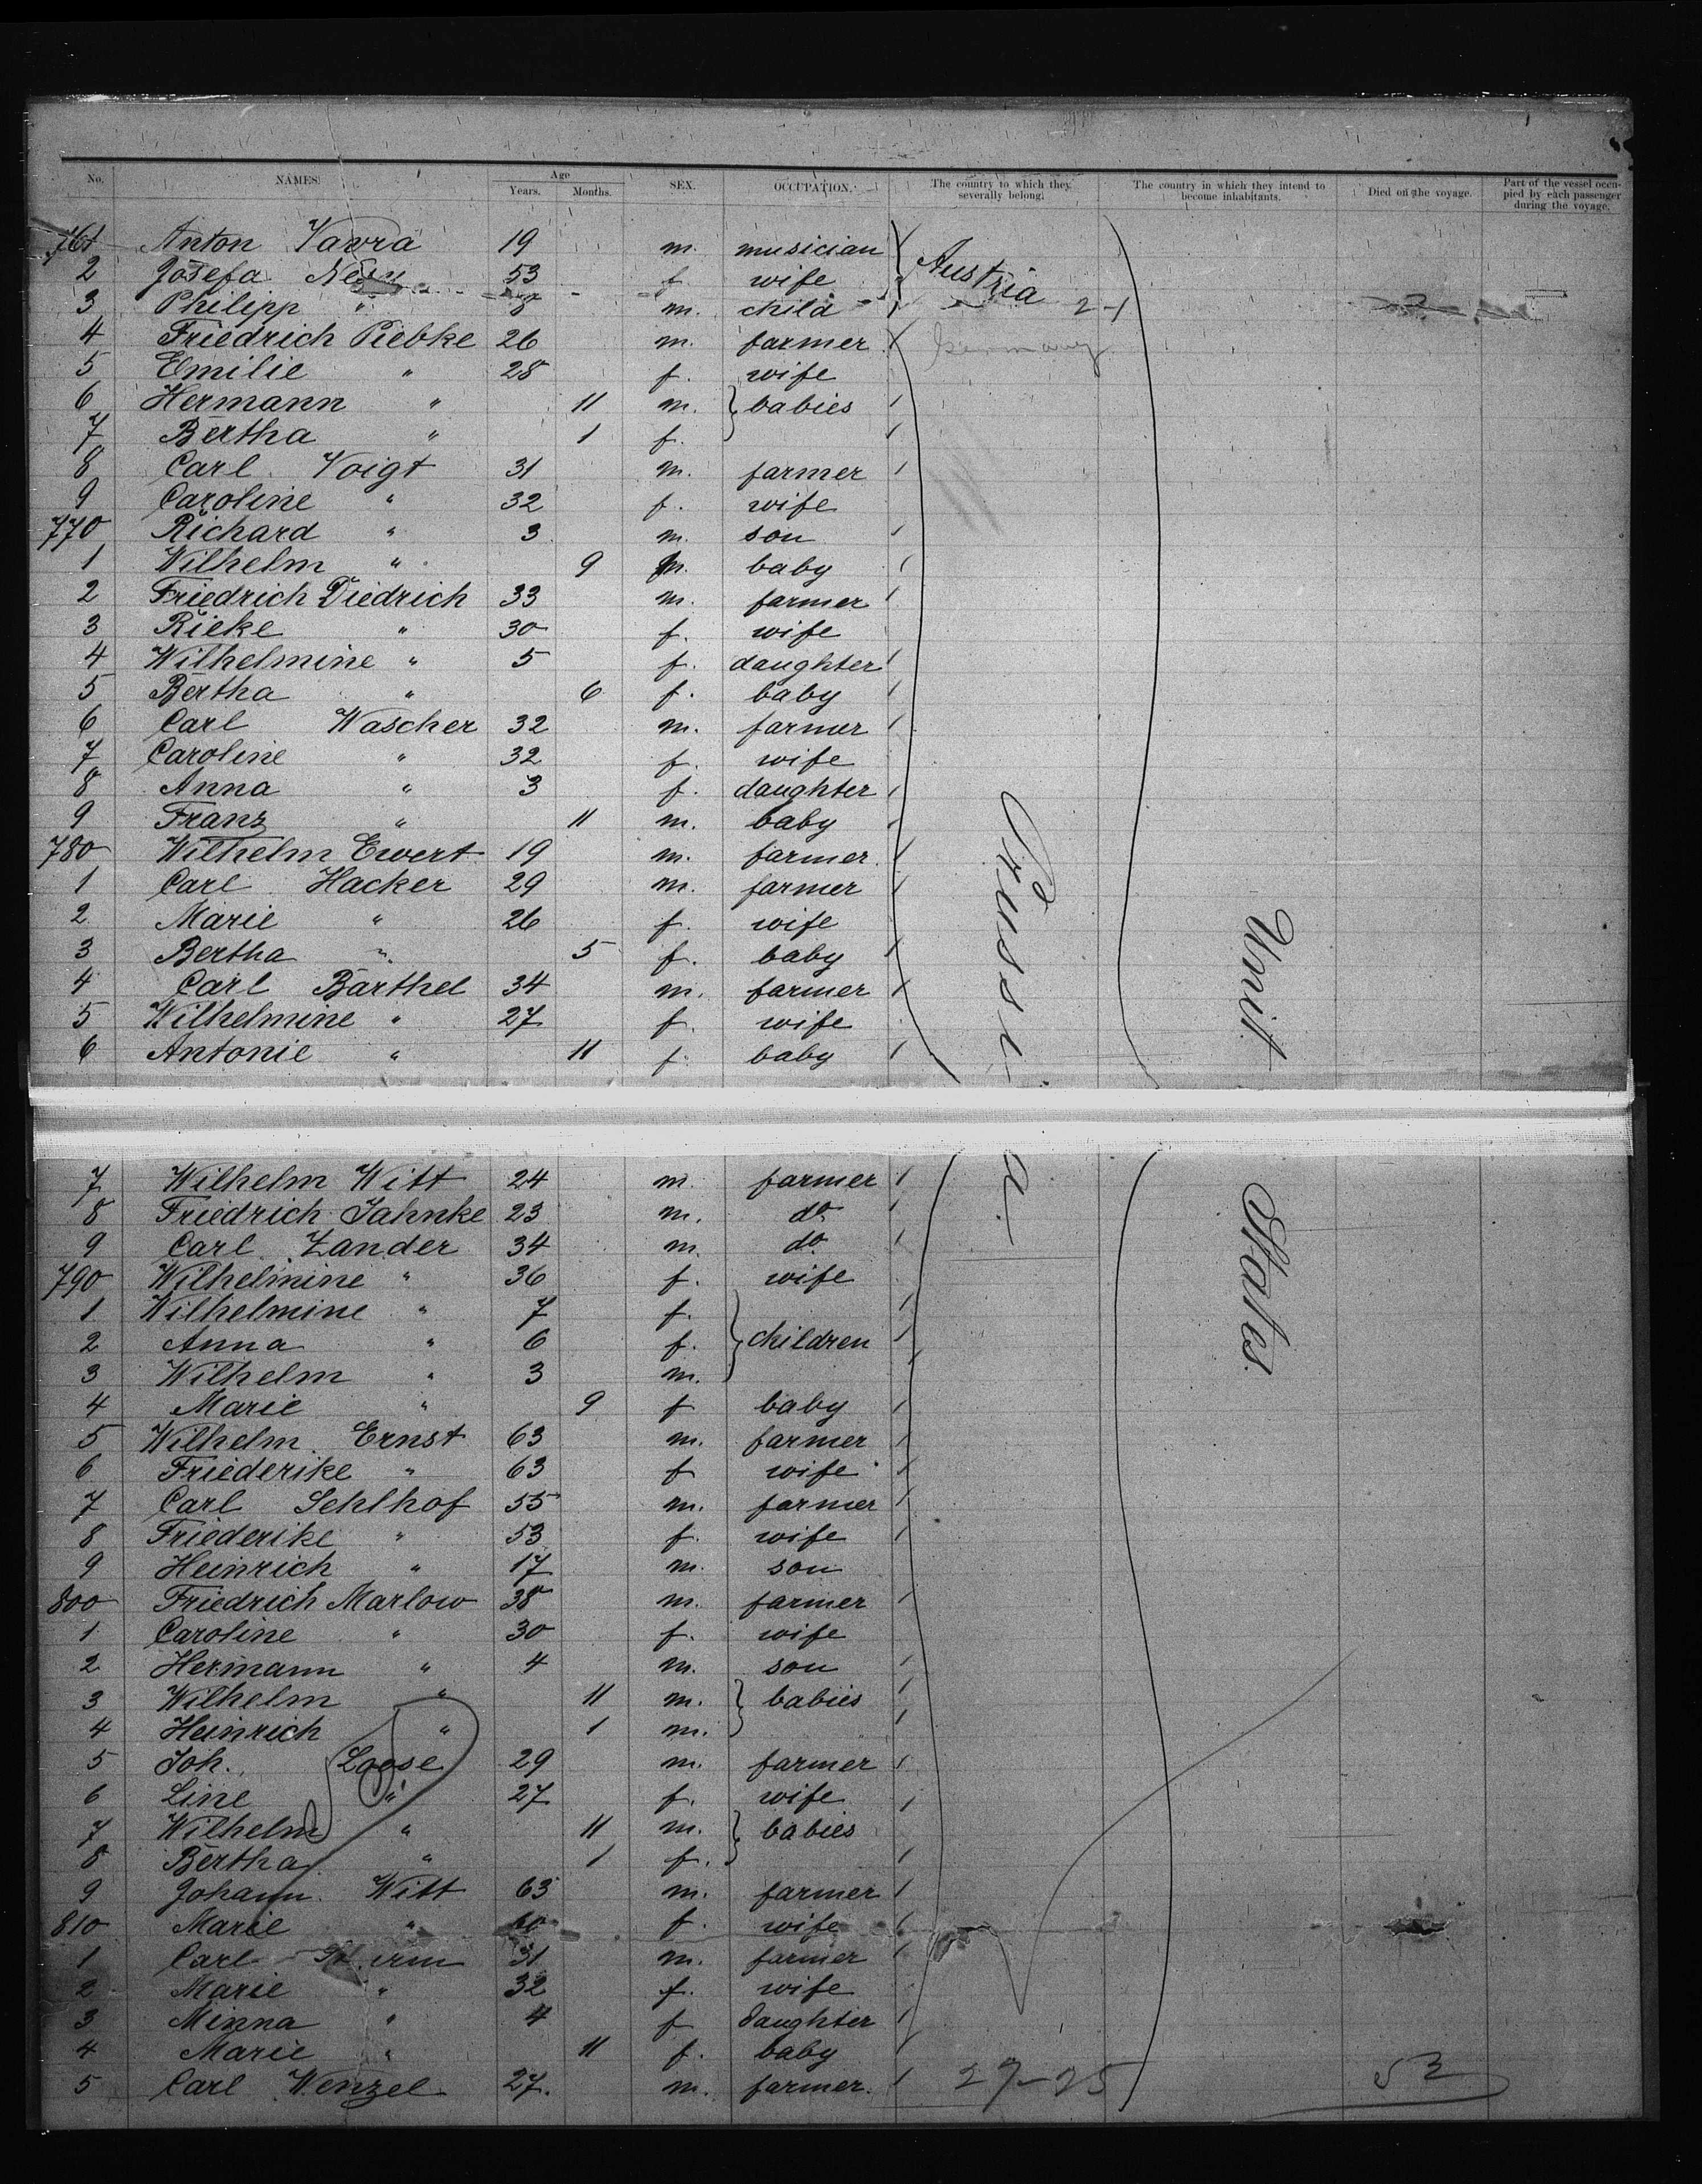 No. NAMES Age Years. Months. SEX. OCCUPATION. The country to which they severally belong. The country in which they intend to become inhabitants. Died on the voyage. Part of the vessel occupied by each passenger during the voyage.
761 Anton Vavra 19 m. musician
Austria
2 Josefa 53 f. wife
3 Philipp " 8 m. child 2-1
4 Friedrich Piebke 26 m. farmer Germany
5 Emilie " 28 f. wife
6 Hermann " 11 m. babies
7 Bertha " 1 f.
8 Carl Voigt 31 m. farmer
9 Caroline " 32 f. wife
770 Richard " 3 m. son
1 Wilhelm " 9 m. baby
2 Friedrich Diedrich 33 m. farmer
3 Rieke " 30 f. wife
4 Wilhelmine " 5 f. daughter
5 Bertha " 6 f. baby
6 Carl Wascher 32 m. farmer
7 Caroline " 32 f. wife
8 Anna " 3 f. daughter
9 Franz " 11 m. baby
780 Wilhelm Ewert 19 m. farmer
1 Carl Hacker 29 m. farmer
2 Marie " 26 f. wife
3 Bertha " 5 f. baby
4 Carl Barthel 34 m. farmer
5 Wilhelmine " 27 f. wife
6 Antonie " 11 f. baby
Prussia.
Unit. States.
7 Wilhelm Witt 24 m. farmer
8 Friedrich Jahnke 23 m. do
9 Carl Zander 34 m. do
790 Wilhelmine " 36 f. wife
1 Wilhelmine " 7 f.
2 Anna " 6 f. children
3 Wilhelm " 3 m.
4 Marie " 9 f baby
5 Wilhelm Ernst 63 m. farmer
6 Friederike " 63 f wife
7 Carl Sehlhof 55 m. farmer
8 Friederike " 53 f. wife
9 Heinrich " 17 m. son
800 Friedrich Marlow 38 m. farmer
1 Caroline " 30 f. wife
2 Hermann " 4 m. son
3 Wilhelm " 11 m. babies
4 Heinrich " 1 m.
5 Joh. Loose 29 m. farmer
6 Line " 27 f. wife
7 Wilhelm " 11 m. babies
8 Bertha " 1 f.
9 Johann Witt 63 m. farmer
810 Marie " 60 f. wife
1 Carl 31 m. farmer
2 Marie " 32 f. wife
3 Minna " 4 f daughter
4 Marie " 11 f. baby
5 Carl Wenzel 27. m. farmer. 27-25 52